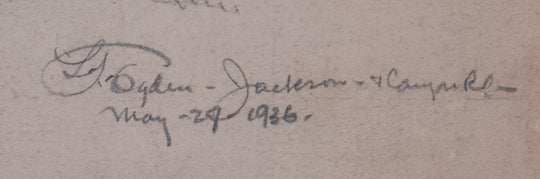 Ogden - Jackson - + Canyon
May - 29 1936.